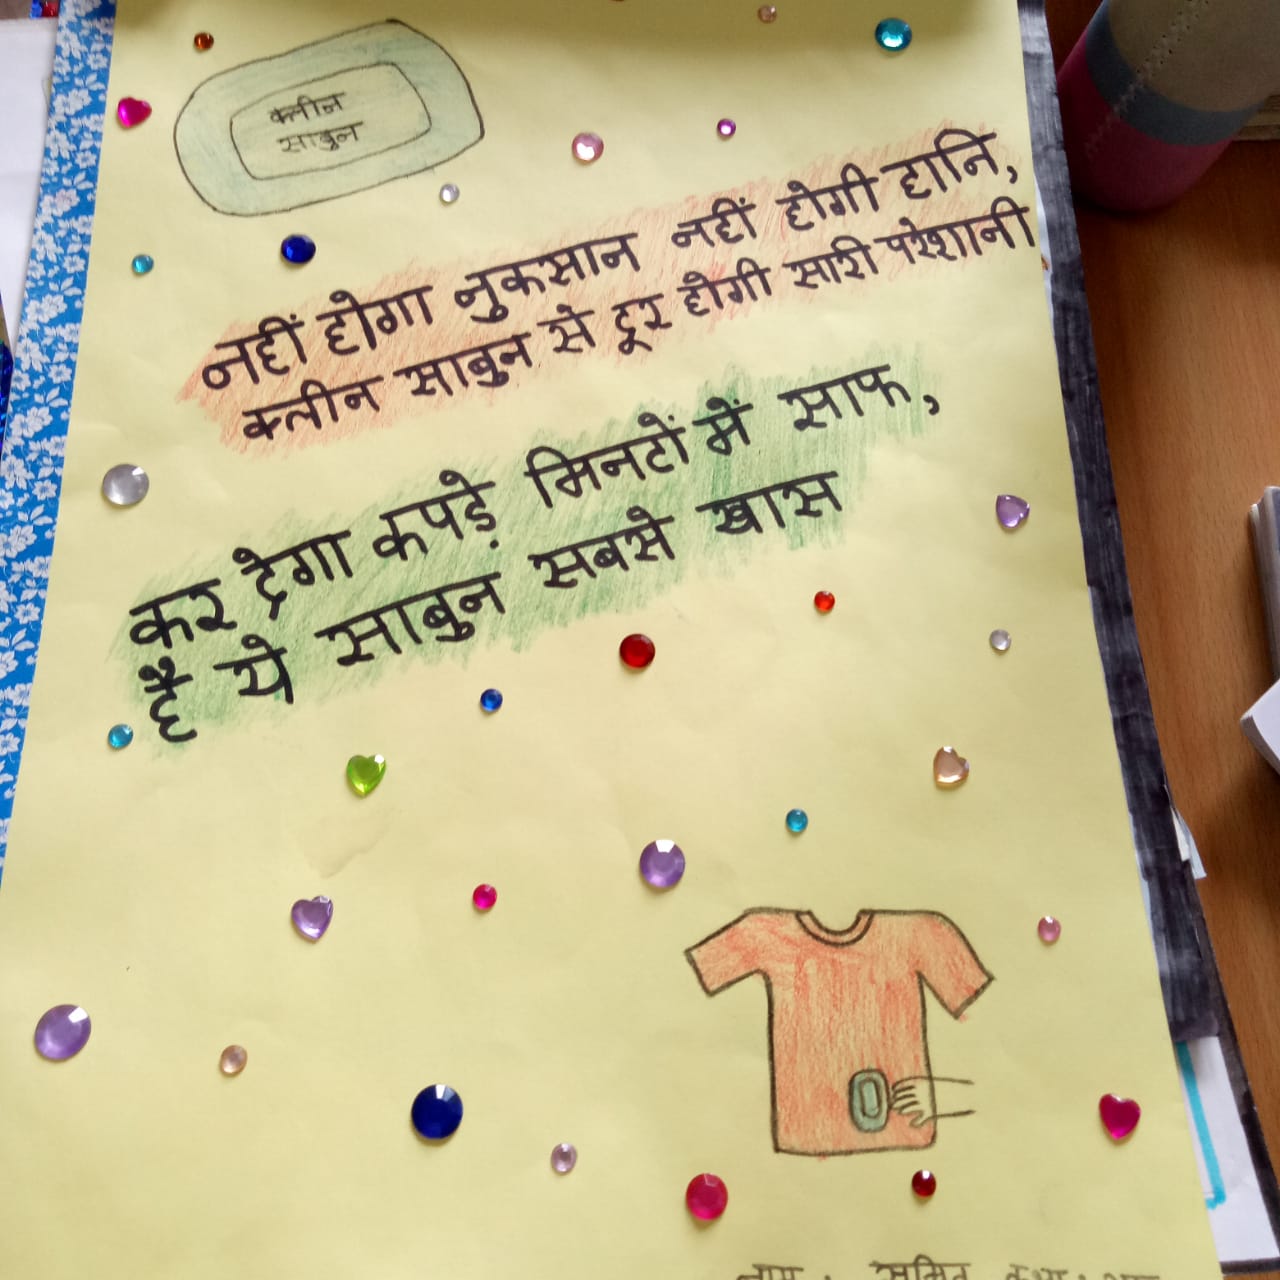 क्लीन
साबुन
नहीं होगा नुकसान नहीं होगी हानि,
क्लीन साबुन से दूर होगी सारी परेशानी
कर देगा कपड़े मिनटों में साफ,
है ये साबुन सबसे खास
नाम :